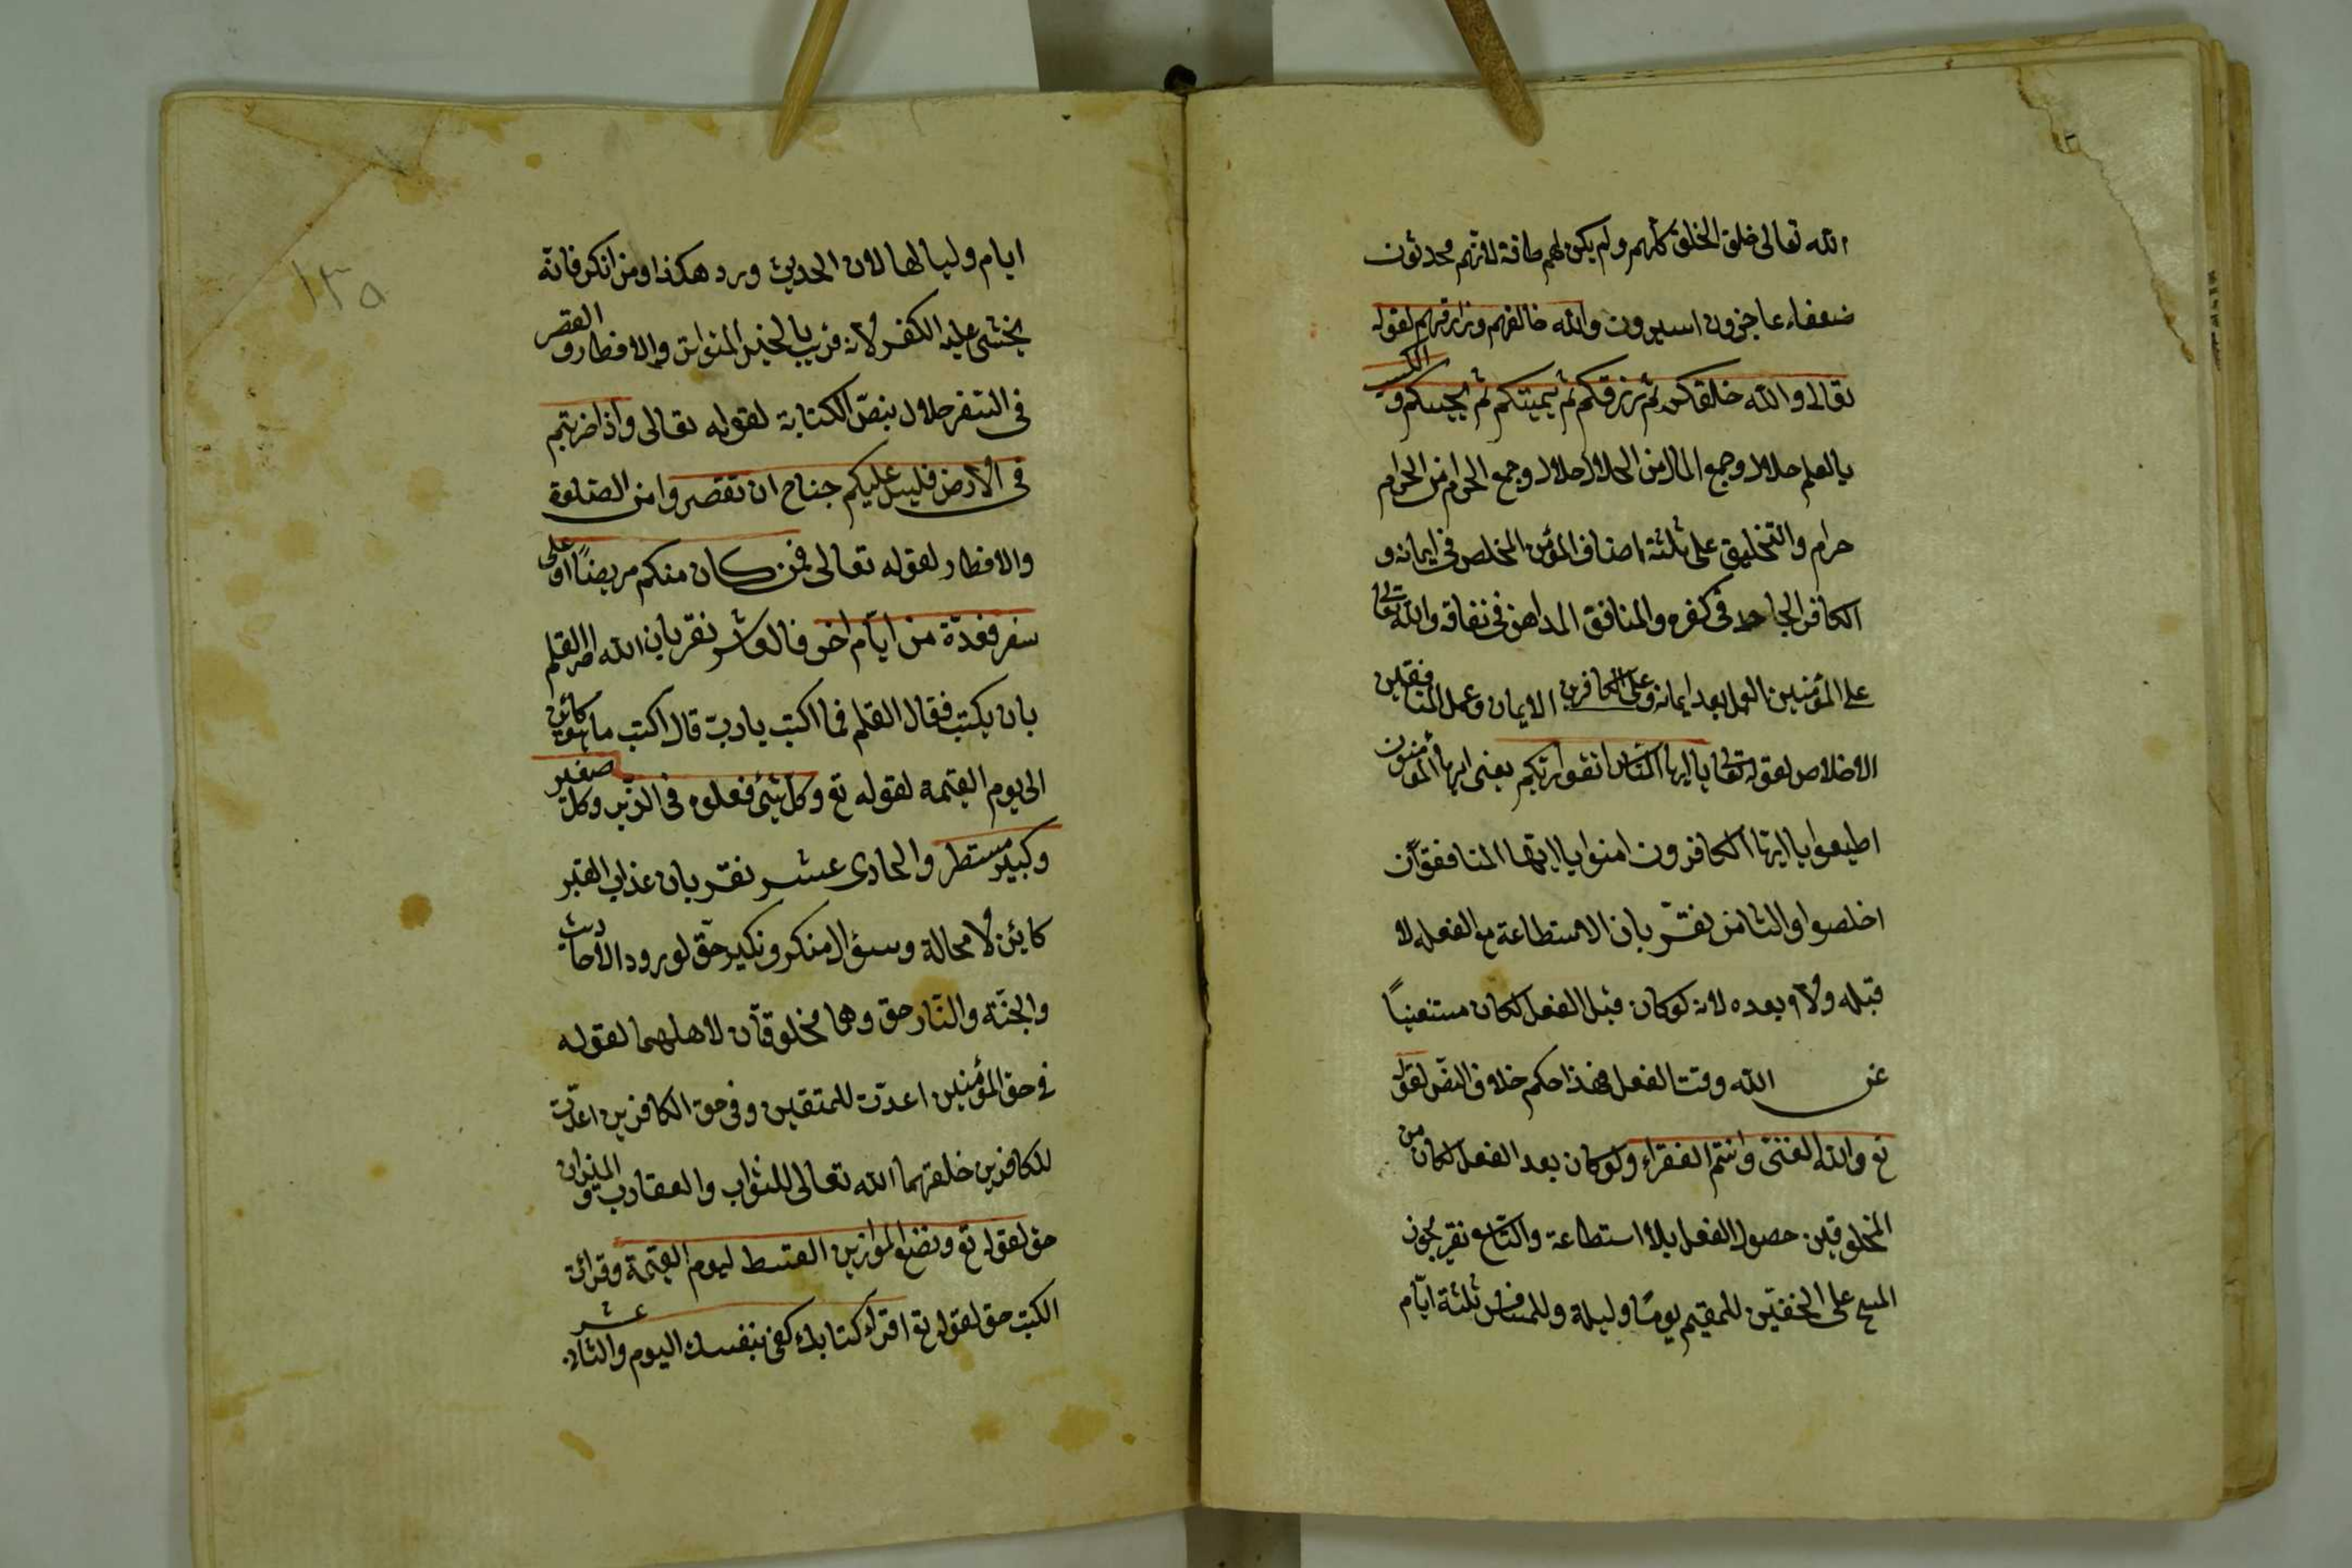 الله تعالى خلق الخلق كلهم ولم يكن لهم طاقة لانهم محدثون
ضعفاء عاجزون اسيرون والله خالقهم ورازقهم لقوله
تعالى والله خلقكم ثم رزقكم ثم يميتكم ثم يحييكم والكسب
بالعلم حلال وجمع المال من الحلال حلال وجمع الحرام من الحرام
حرام والتخليق على ثلثة اصناف المؤمن المخلص في ايمانه و
الكافر الجاحد في كفره والمنافق المداهن في نفاقه والله تعالى
على المؤمنين العمل بعد ايمانه وعلى الكافرين الايمان وعمل المنافقين
الاخلاص لقوله تعالى يا ايها الناس اتقوا ربكم يعنى ايها المؤمنون
اطيعوا يا ايها الكافرون امنوا يا ايها المنافقون
اخلصوا والثامن نقرّ بان الاستطاعة مع الفعل لا
قبله ولا بعده لانه لو كان قبل الفعل لكان مستغنياً
عن الله وقت الفعل فهذا حكم خلاف النص لقوله
تع والله الغنى وانتم الفقراء ولو كان بعد الفعل لكان من
المخلوقين حصول الفعل بلا استطاعة والتاسع نقر بجون
المسح على الخفين للمقيم يومًا وليلة وللمسافر ثلثة ايّام
١٣٥
ايام ولياليها لان الحديث ورد هكذا ومن انكر فانه
يخشى عليه الكفر لانه قريب بالخبر المتواتر والافطار والقصر
في السفر حلال بنصّ الكتابة لقوله تعالى واذا ضربتم
في الارض فليس عليكم جناح ان تقصروا من الصلوة
والافطار لقوله تعالى فمن كان منكم مريضًا او على
سفر فعدة من ايّام اخر فالعاشر نقر بان الله امر القلم
بان يكتب فقال القلم فما اكتب يا ربّ قال اكتب ما هو كائن
الى يوم القيمة لقوله تع وكل شئ فعلوه في الزبر وكل صغير
وكبير مستطر والحادى عشر نقر بان عذاب القبر
كائن لا محالة وسئوال منكر ونكير حقّ لورود الاحاديث
والجنّة والنّار حق وهما مخلوقان لاهلهما لقوله
في حق المؤمنين اعدّت للمتقين وفى حق الكافرين اعدّت
للكافرين خلقهما الله تعالى للثواب والعقاب والميزان
حق لقوله تع ونضع الموازين القسط ليوم القيمة وقرائة
الكتب حق لقوله تع اقراء كتابك كفى بنفسك اليوم والثانى عشر